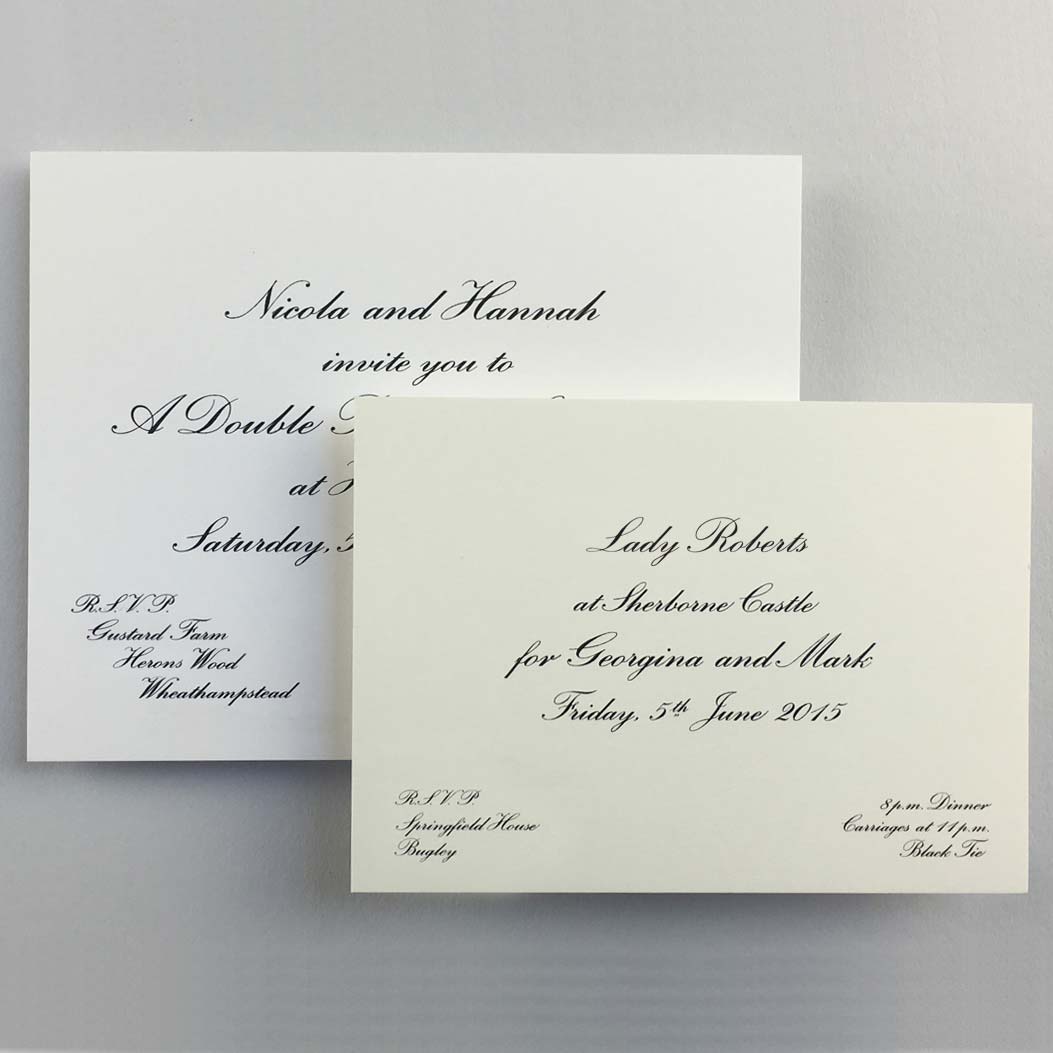 Nicola and Hannah
invite you to
A Double
at
Saturday, 5
R.S.V.P.
Gustard Farm
Herons Wood
Wheathampstead
Lady Roberts
at Sherborne Castle
for Georgina and Mark
Friday, 5th June 2015
R.S.V.P.
Springfield House
Bugley
8 p.m. Dinner
Carriages at 11 p.m.
Black Tie